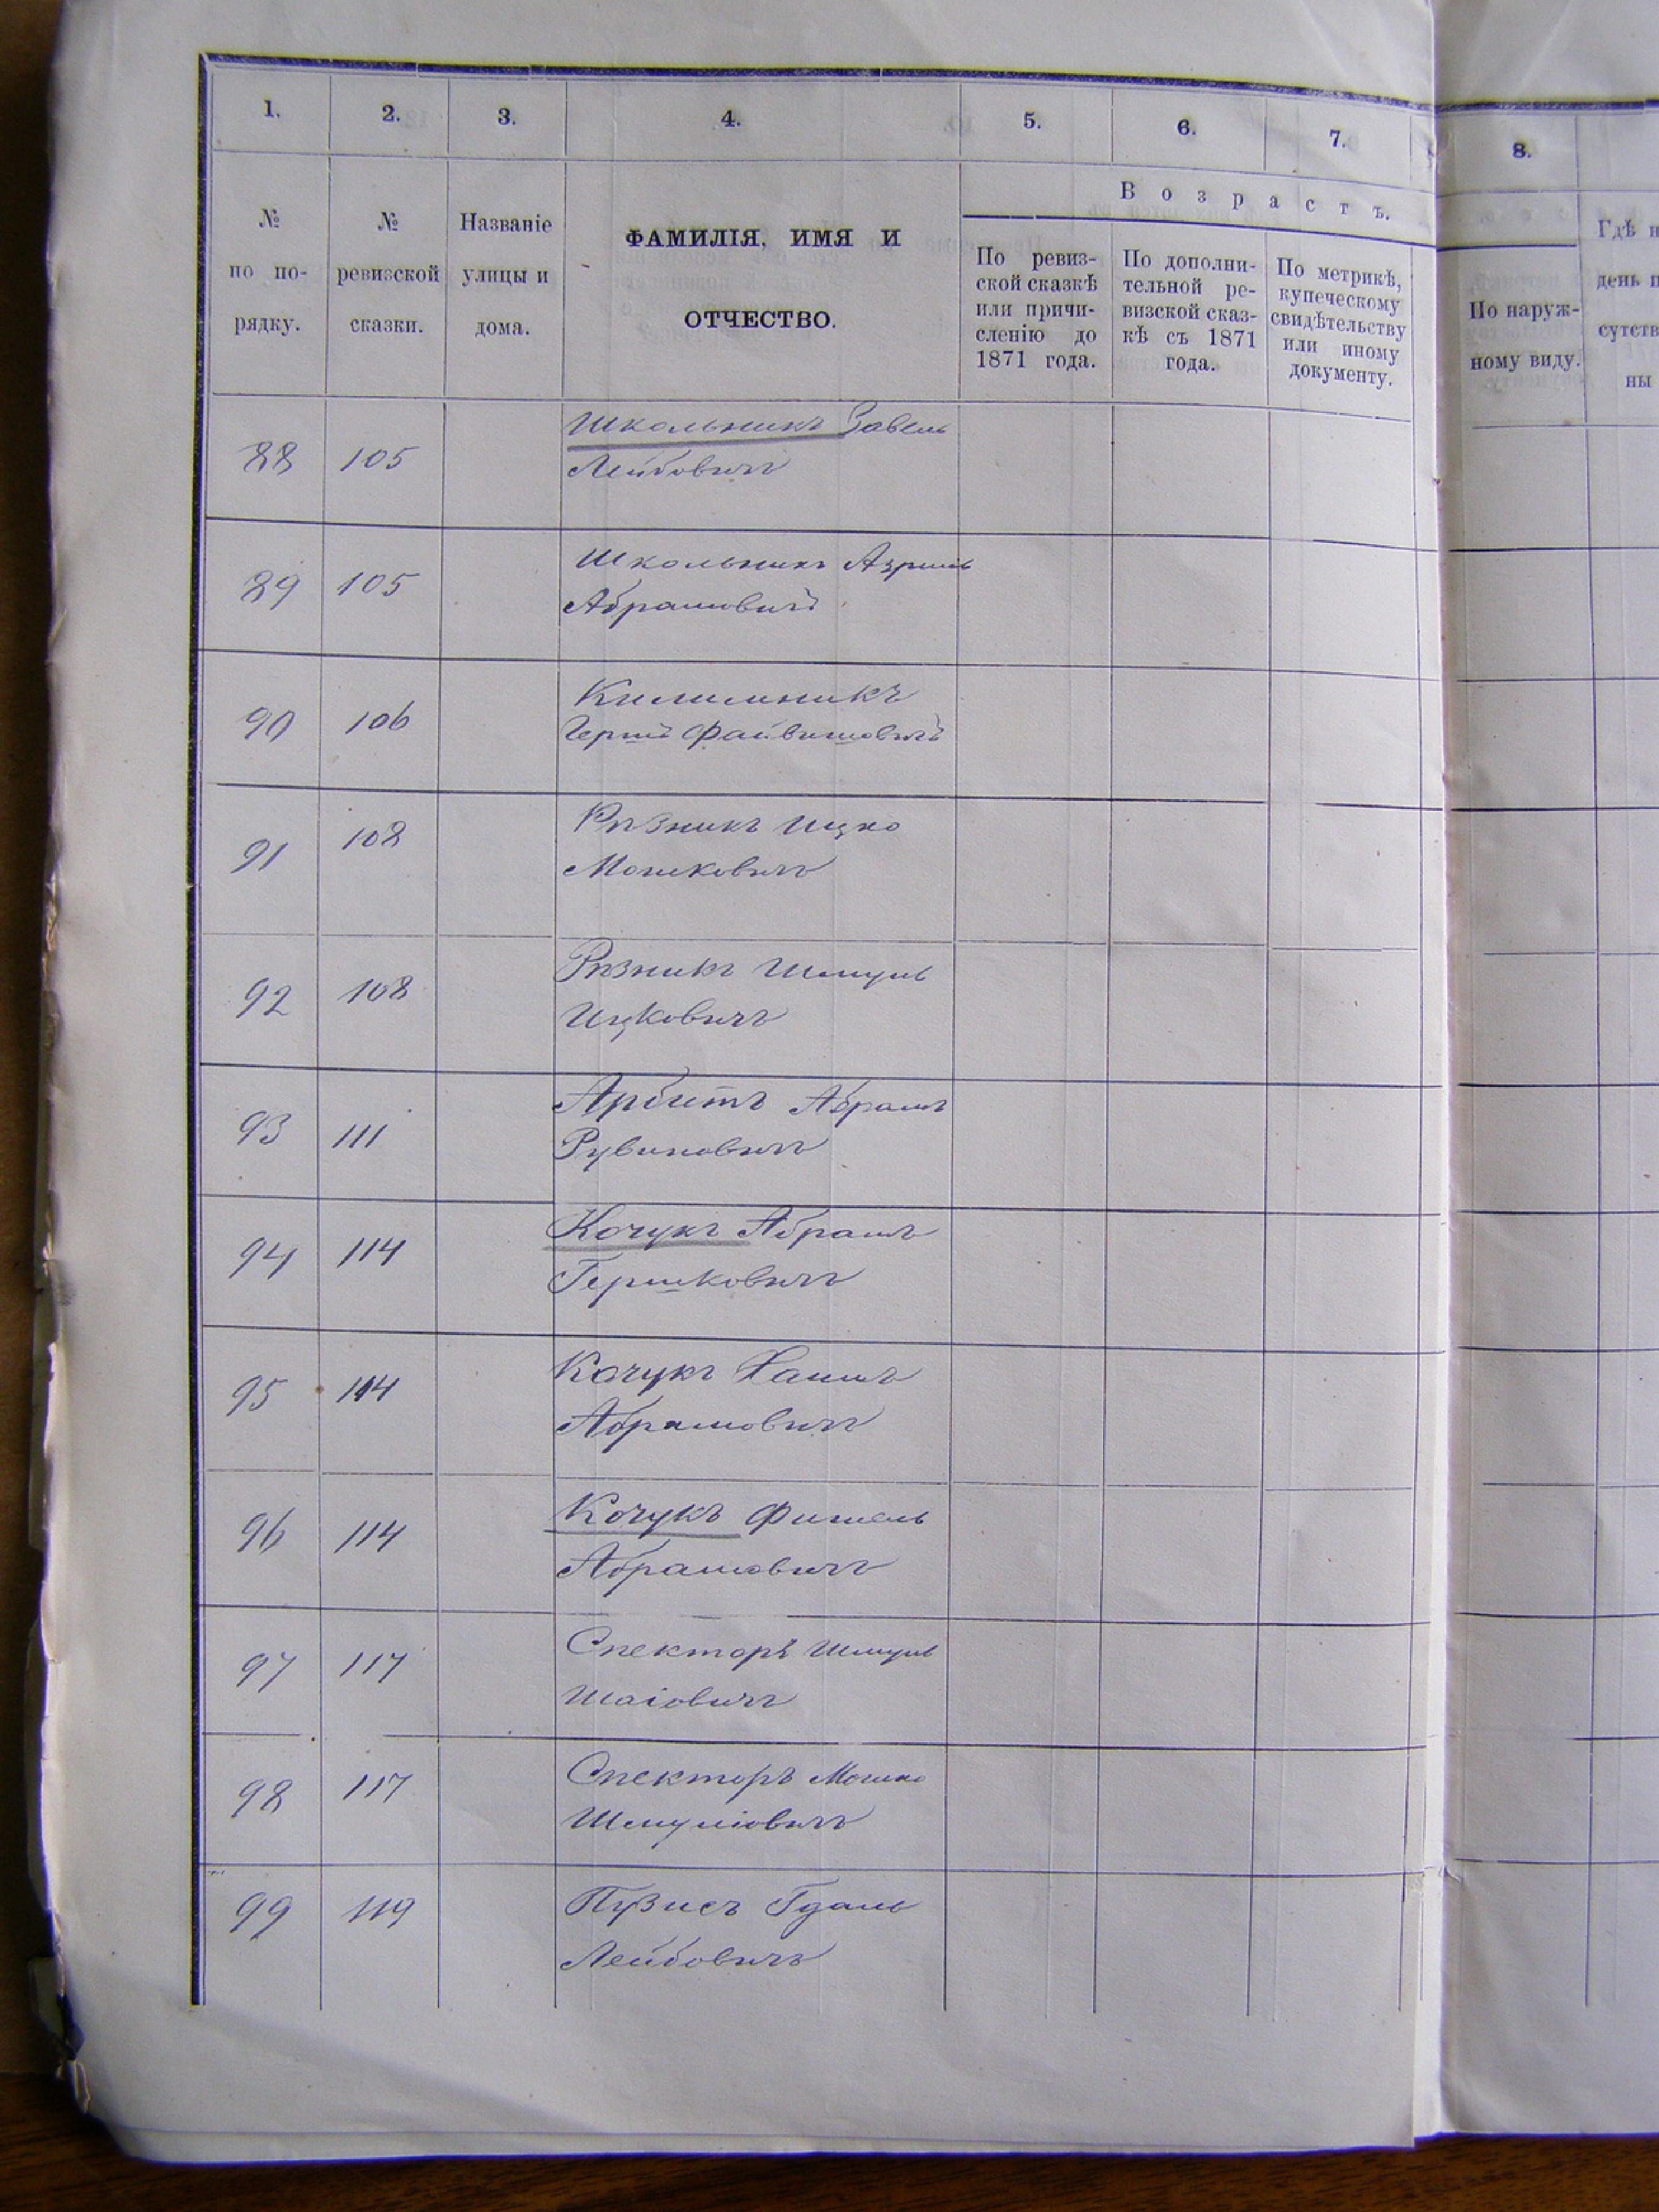 1. 2. 3. 4. 5. 6. 7. 8.
№ по по-рядку.
№ ревизской сказки.
Названіе улицы и дома.
ФАМИЛІЯ, ИМЯ И
ОТЧЕСТВО.
Возрастъ.
По ревиз-
ской сказкѣ
или причи-
сленію до
1871 года.
По дополни-
тельной ре-
визской сказ-
кѣ съ 1871
года.
По метрикѣ,
купеческому
свидѣтельству
или иному
документу.
По наруж-
ному виду.
Гдѣ
день
ны
88 105 Школьникъ Завель
Лейбовичъ
89 105 Школьникъ Азриль
Абрамовичъ
90 106 Килимникъ
Гершъ Файвишовичъ
91 108 Рѣзникъ Ицко
Мошковичъ
92 108 Рѣзникъ Шмуль
Ицковичъ
93 111 Арбитъ Абрамъ
Рувиновичъ
94 114 Кочукъ Абрамъ
Гершковичъ
95 114 Кочукъ Хаимъ
Абрамовичъ
96 114 Кочукъ Фишель
Абрамовичъ
97 117 Спекторъ Шмуль
Шаіовичъ
98 117 Спекторъ Мошко
Шмуліовичъ
99 119 Пузисъ Гдаль
Лейбовичъ